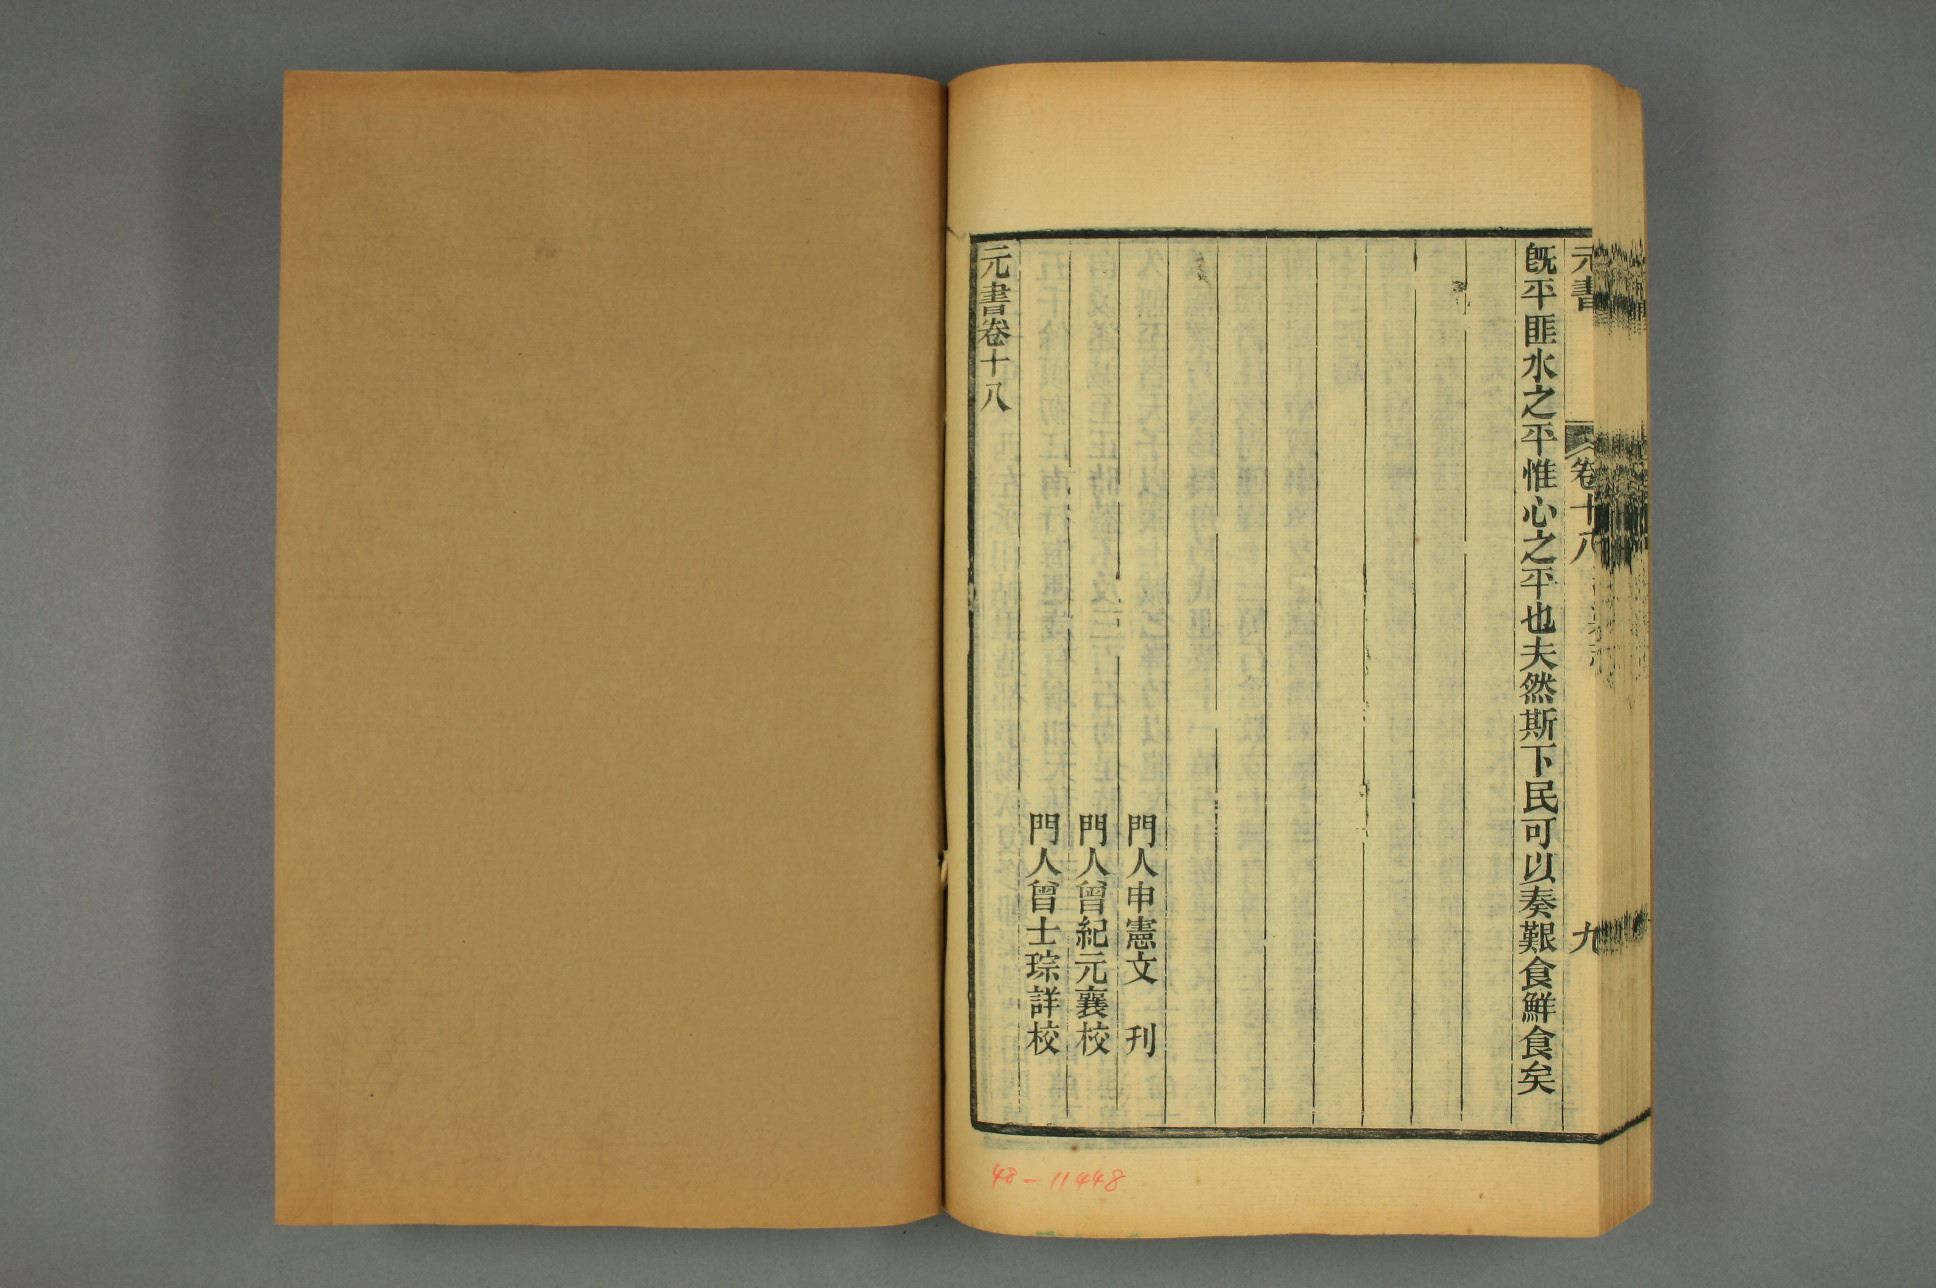 元書 卷十八 九
旣平匪水之平惟心之平也夫然斯下民可以奏艱食鮮食矣
門人申憲文 刊
門人曾紀元襄校
門人曾士琮詳校
元書卷十八
48-11448